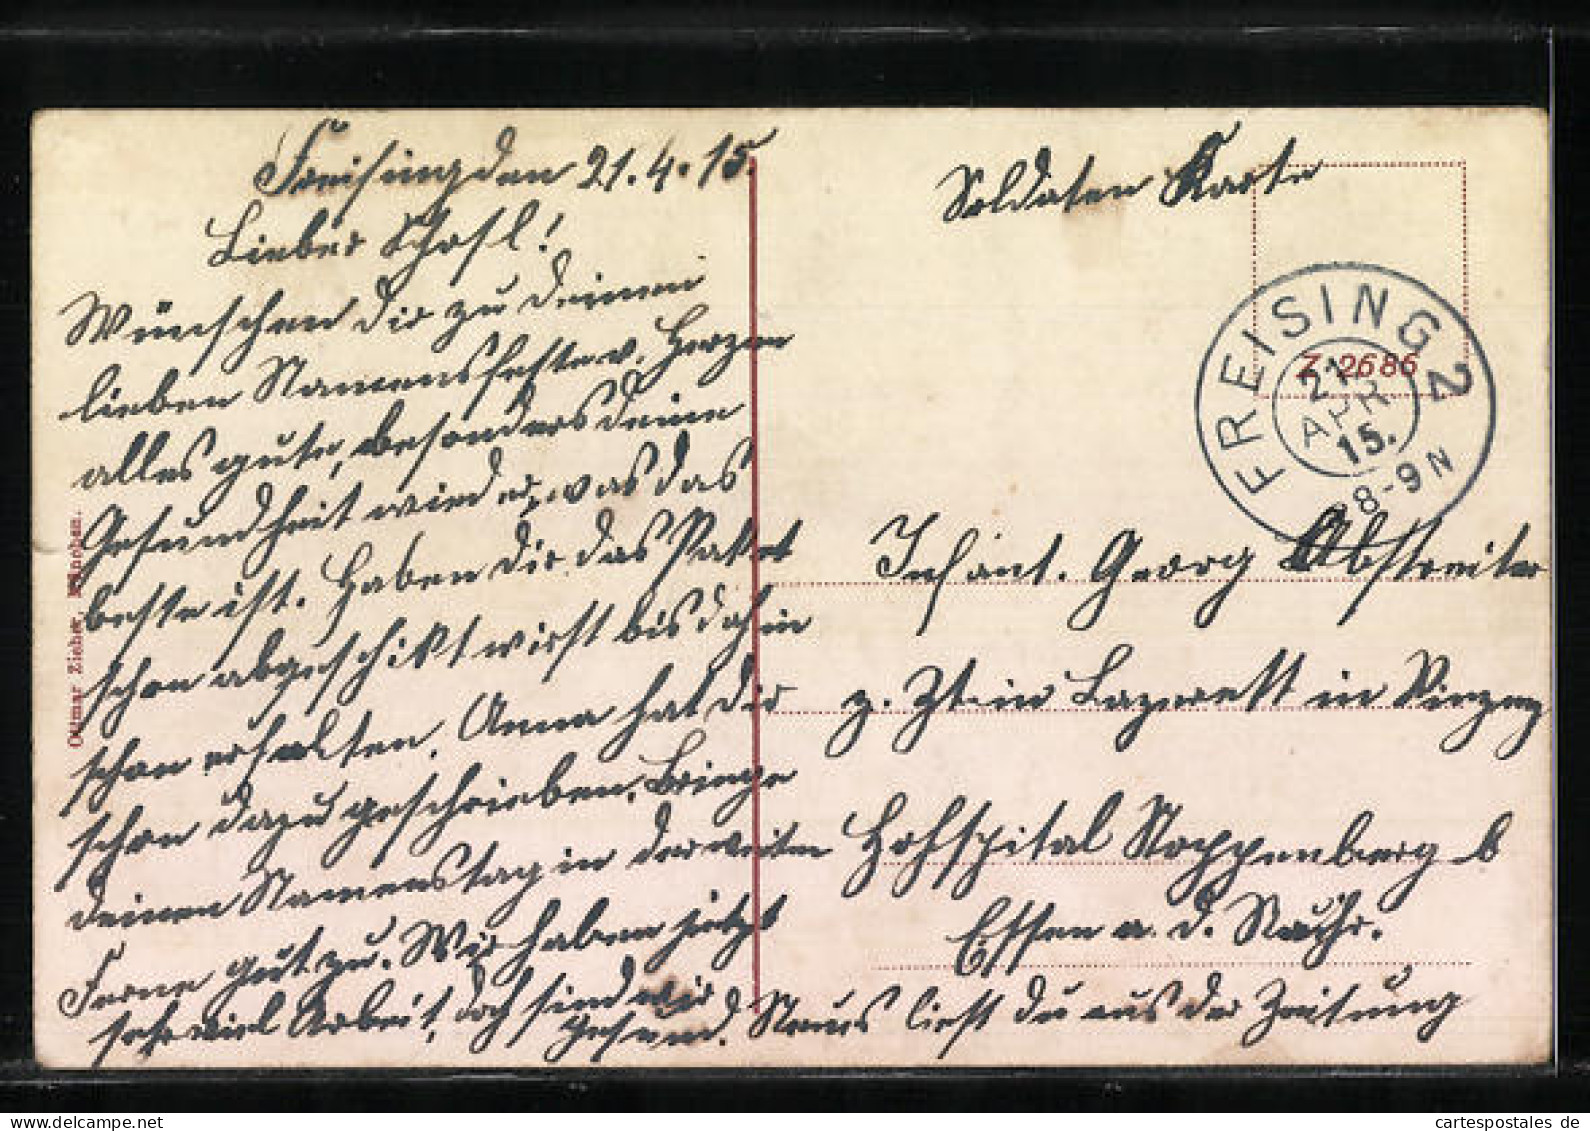 Freising den 21.4.15.
Lieber Schosl!
Wünschen dir zu deinen
lieben Namensfeste v. Herzen
alles gute, besonders deine
Gesundheit wieder, was das
beste ist. Haben dir das Paket
schon abgeschikt wirst bis dahin
schon erhalten. Anna hat dir
schon dazu geschrieben. Bringe
deinen Namenstag in der weiten
Ferne gut zu. Wir haben jetzt
sehr viel Arbeit, doch sind wir
gesund. Neues liest du aus der Zeitung
Soldaten Karte
FREISING 2
21 APR 15.
8-9 N
Z 2686
Infant. Georg Abstreiter
z. Zt. in Lazarett in
Hofspital Stoppenberg b
Essen a. d. Ruhr.
Ottmar Zieher, München.
cartespostales de